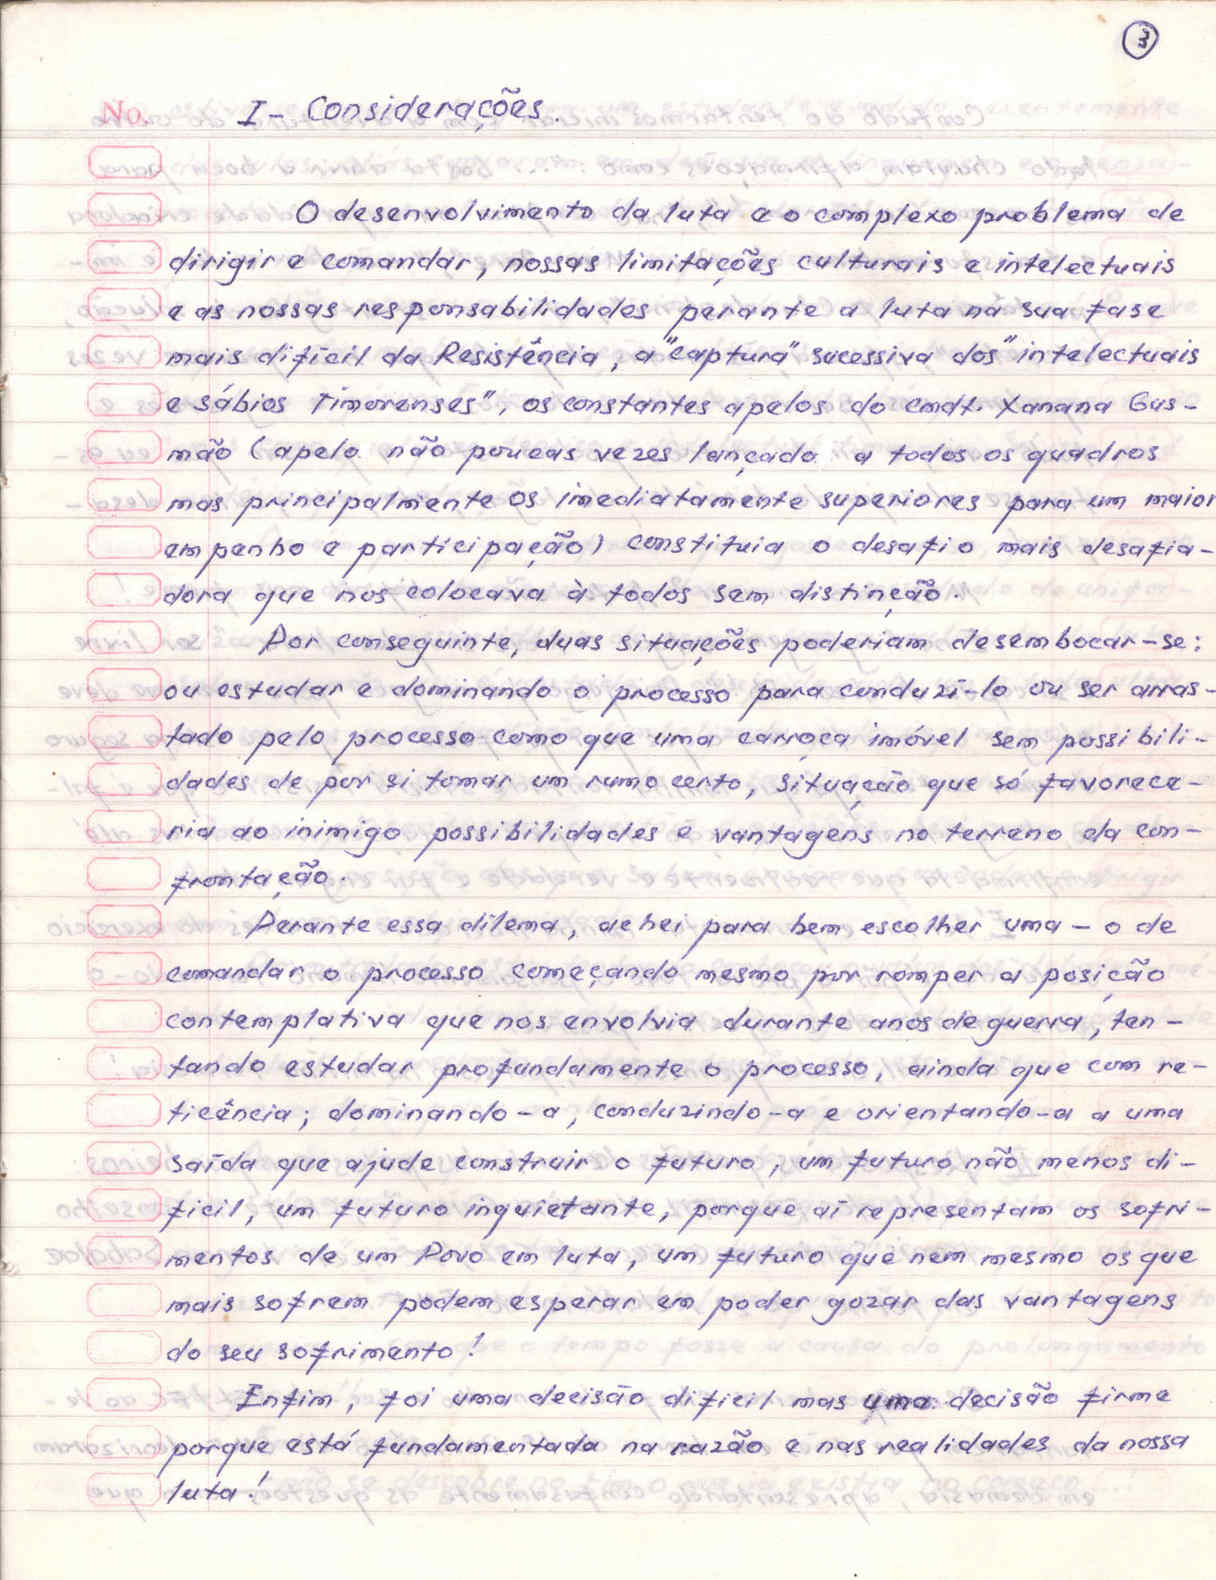 3
No. I - Considerações.
O desenvolvimento da luta e o complexo problema de
dirigir e comandar, nossas limitações culturais e intelectuais
e as nossas responsabilidades perante a luta na sua fase
mais difícil da Resistência, a "captura" sucessiva dos "intelectuais
e sábios Timorenses", os constantes apelos do Cmdt. Xanana Gus-
mão (apelo não poucas vezes lançado a todos os quadros
mas principalmente os imediatamente superiores para um maior
empenho e participação) constituia o desafio mais desafia-
dora que nos colocava à todos sem distinção.
Por conseguinte, duas situações poderiam desembocar-se:
ou estudar e dominando o processo para conduzí-lo ou ser arras-
tado pelo processo como que uma carroça imóvel sem possibili-
dades de por si tomar um rumo certo, situação que só favorece-
ria ao inimigo possibilidades e vantagens no terreno da con-
frontação.
Perante essa dilema, achei para bem escolher uma - o de
comandar o processo começando mesmo por romper a posição
contemplativa que nos envolvia durante anos de guerra, ten-
tando estudar profundamente o processo, ainda que com re-
ticência; dominando-a, conduzindo-a e orientando-a a uma
saída que ajude construir o futuro, um futuro não menos di-
ficil, um futuro inquietante, porque aí representam os sofri-
mentos de um Povo em luta, um futuro que nem mesmo os que
mais sofrem podem esperar em poder gozar das vantagens
do seu sofrimento!
Enfim, foi uma decisão dificil mas uma decisão firme
porque está fundamentada na razão e nas realidades da nossa
luta!